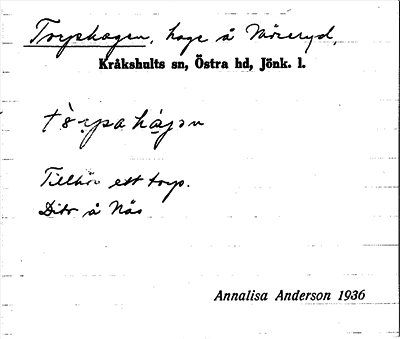 Torphagen, hage å Möreryd,
Kråkshults sn, Östra hd, Jönk. l.
tòrpahàgən
Tillhör ett torp.
Dito å Näs
Annalisa Anderson 1936